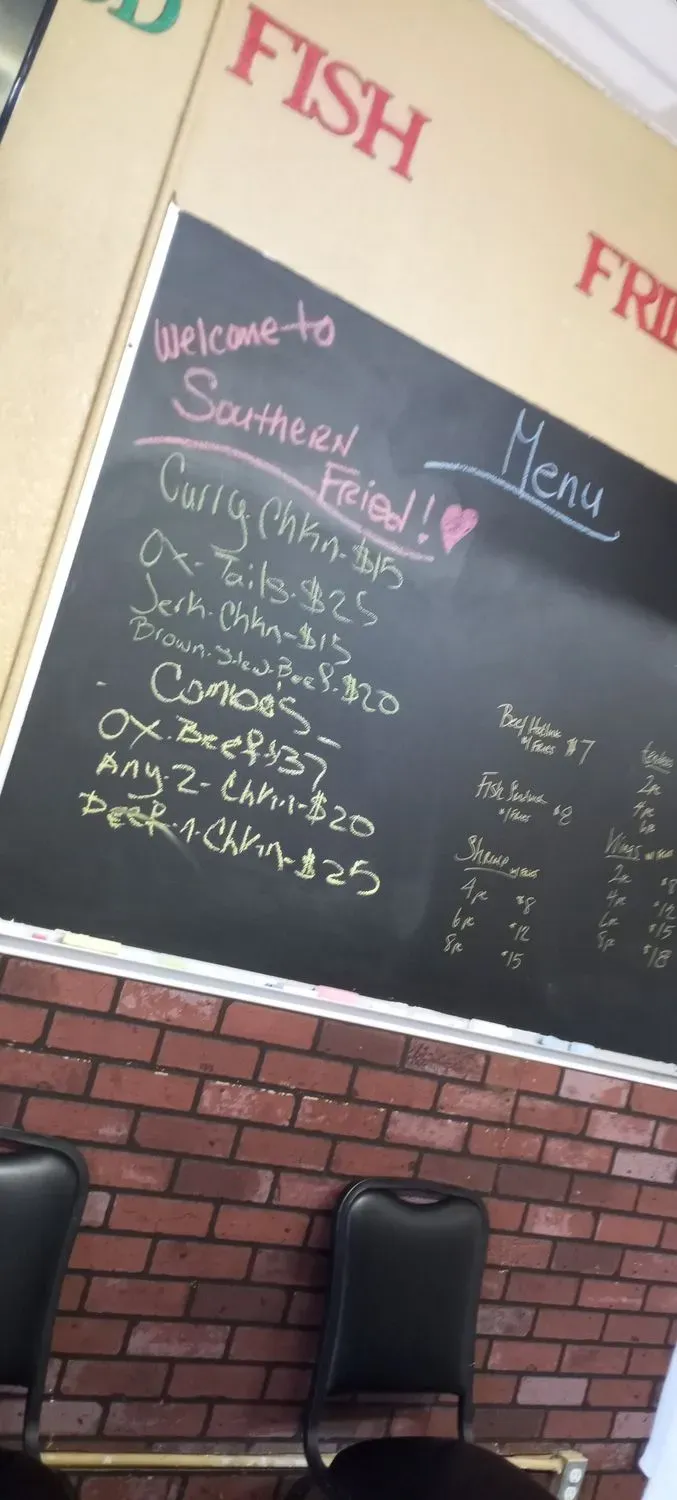 FISH
Welcome to
Southern
Fried!
Curry. Chkn-$15
Ox-Tails-$25
Jerk-Chkn-$15
Brown-Stew-Beef-$20
- Combos -
OX-Beef-$37
Any-2-Chkn-$20
Beef-n-Chkn-$25
Menu
w/ Fries $7
Fish
w/ Fries $8
Shrimp w/ Fries
4pc $8
6pc $12
8pc $15
2pc
4pc
6pc
Wings w/ Fries
2pc $8
4pc $12
6pc $15
8pc $18